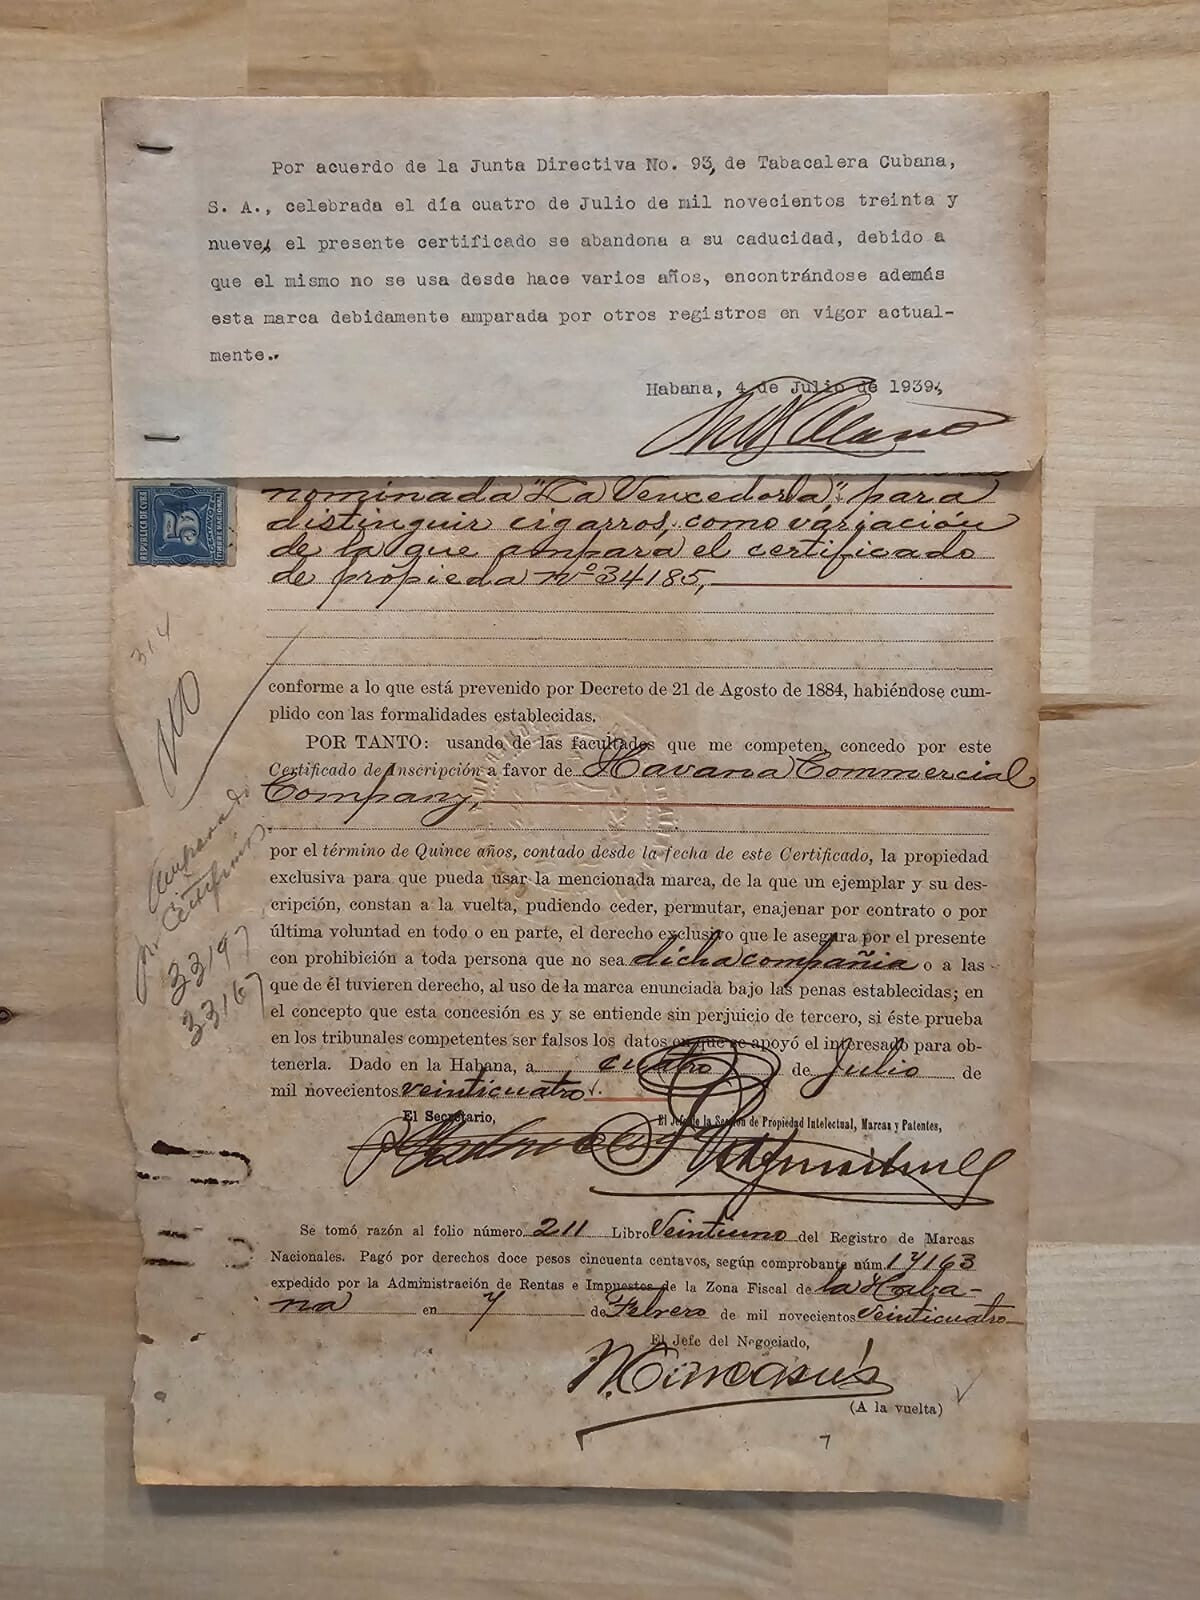 Por acuerdo de la Junta Directiva No. 93, de Tabacalera Cubana,
S. A., celebrada el día cuatro de Julio de mil novecientos treinta y
nueve, el presente certificado se abandona a su caducidad, debido a
que el mismo no se usa desde hace varios años, encontrándose además
esta marca debidamente amparada por otros registros en vigor actual-
mente..
Habana, 4 de Julio de 1939,
nominada "La Vencedora", para
REPUBLICA DE CUBA
5
TIMBRE NACIONAL
distinguir cigarros, como variación
de la que ampara el certificado
de propieda nº 34185,
314
NO
conforme a lo que está prevenido por Decreto de 21 de Agosto de 1884, habiéndose cum-
plido con las formalidades establecidas.
POR TANTO: usando de las facultades que me competen, concedo por este
Certificado de Inscripción a favor de Havana Commercial
Company,
Amparada
33197
33167
por el término de Quince años, contado desde la fecha de este Certificado, la propiedad
exclusiva para que pueda usar la mencionada marca, de la que un ejemplar y su des-
cripción, constan a la vuelta, pudiendo ceder, permutar, enajenar por contrato o por
última voluntad en todo o en parte, el derecho exclusivo que le asegura por el presente
con prohibición a toda persona que no sea dicha compañia o a las
que de él tuvieren derecho, al uso de la marca enunciada bajo las penas establecidas; en
el concepto que esta concesión es y se entiende sin perjuicio de tercero, si éste prueba
en los tribunales competentes ser falsos los datos en que se apoyó el interesado para ob-
tenerla. Dado en la Habana, a cuatro de Julio de
mil novecientos veinticuatro.
El Secretario,
El Jefe de la Sección de Propiedad Intelectual, Marcas y Patentes,
Se tomó razón al folio número 211 Libro Veintiuno del Registro de Marcas
Nacionales. Pagó por derechos doce pesos cincuenta centavos, según comprobante núm. 17163
expedido por la Administración de Rentas e Impuestos de la Zona Fiscal de la Haba-
na en 7 de Febrero de mil novecientos veinticuatro
El Jefe del Negociado,
(A la vuelta)
7